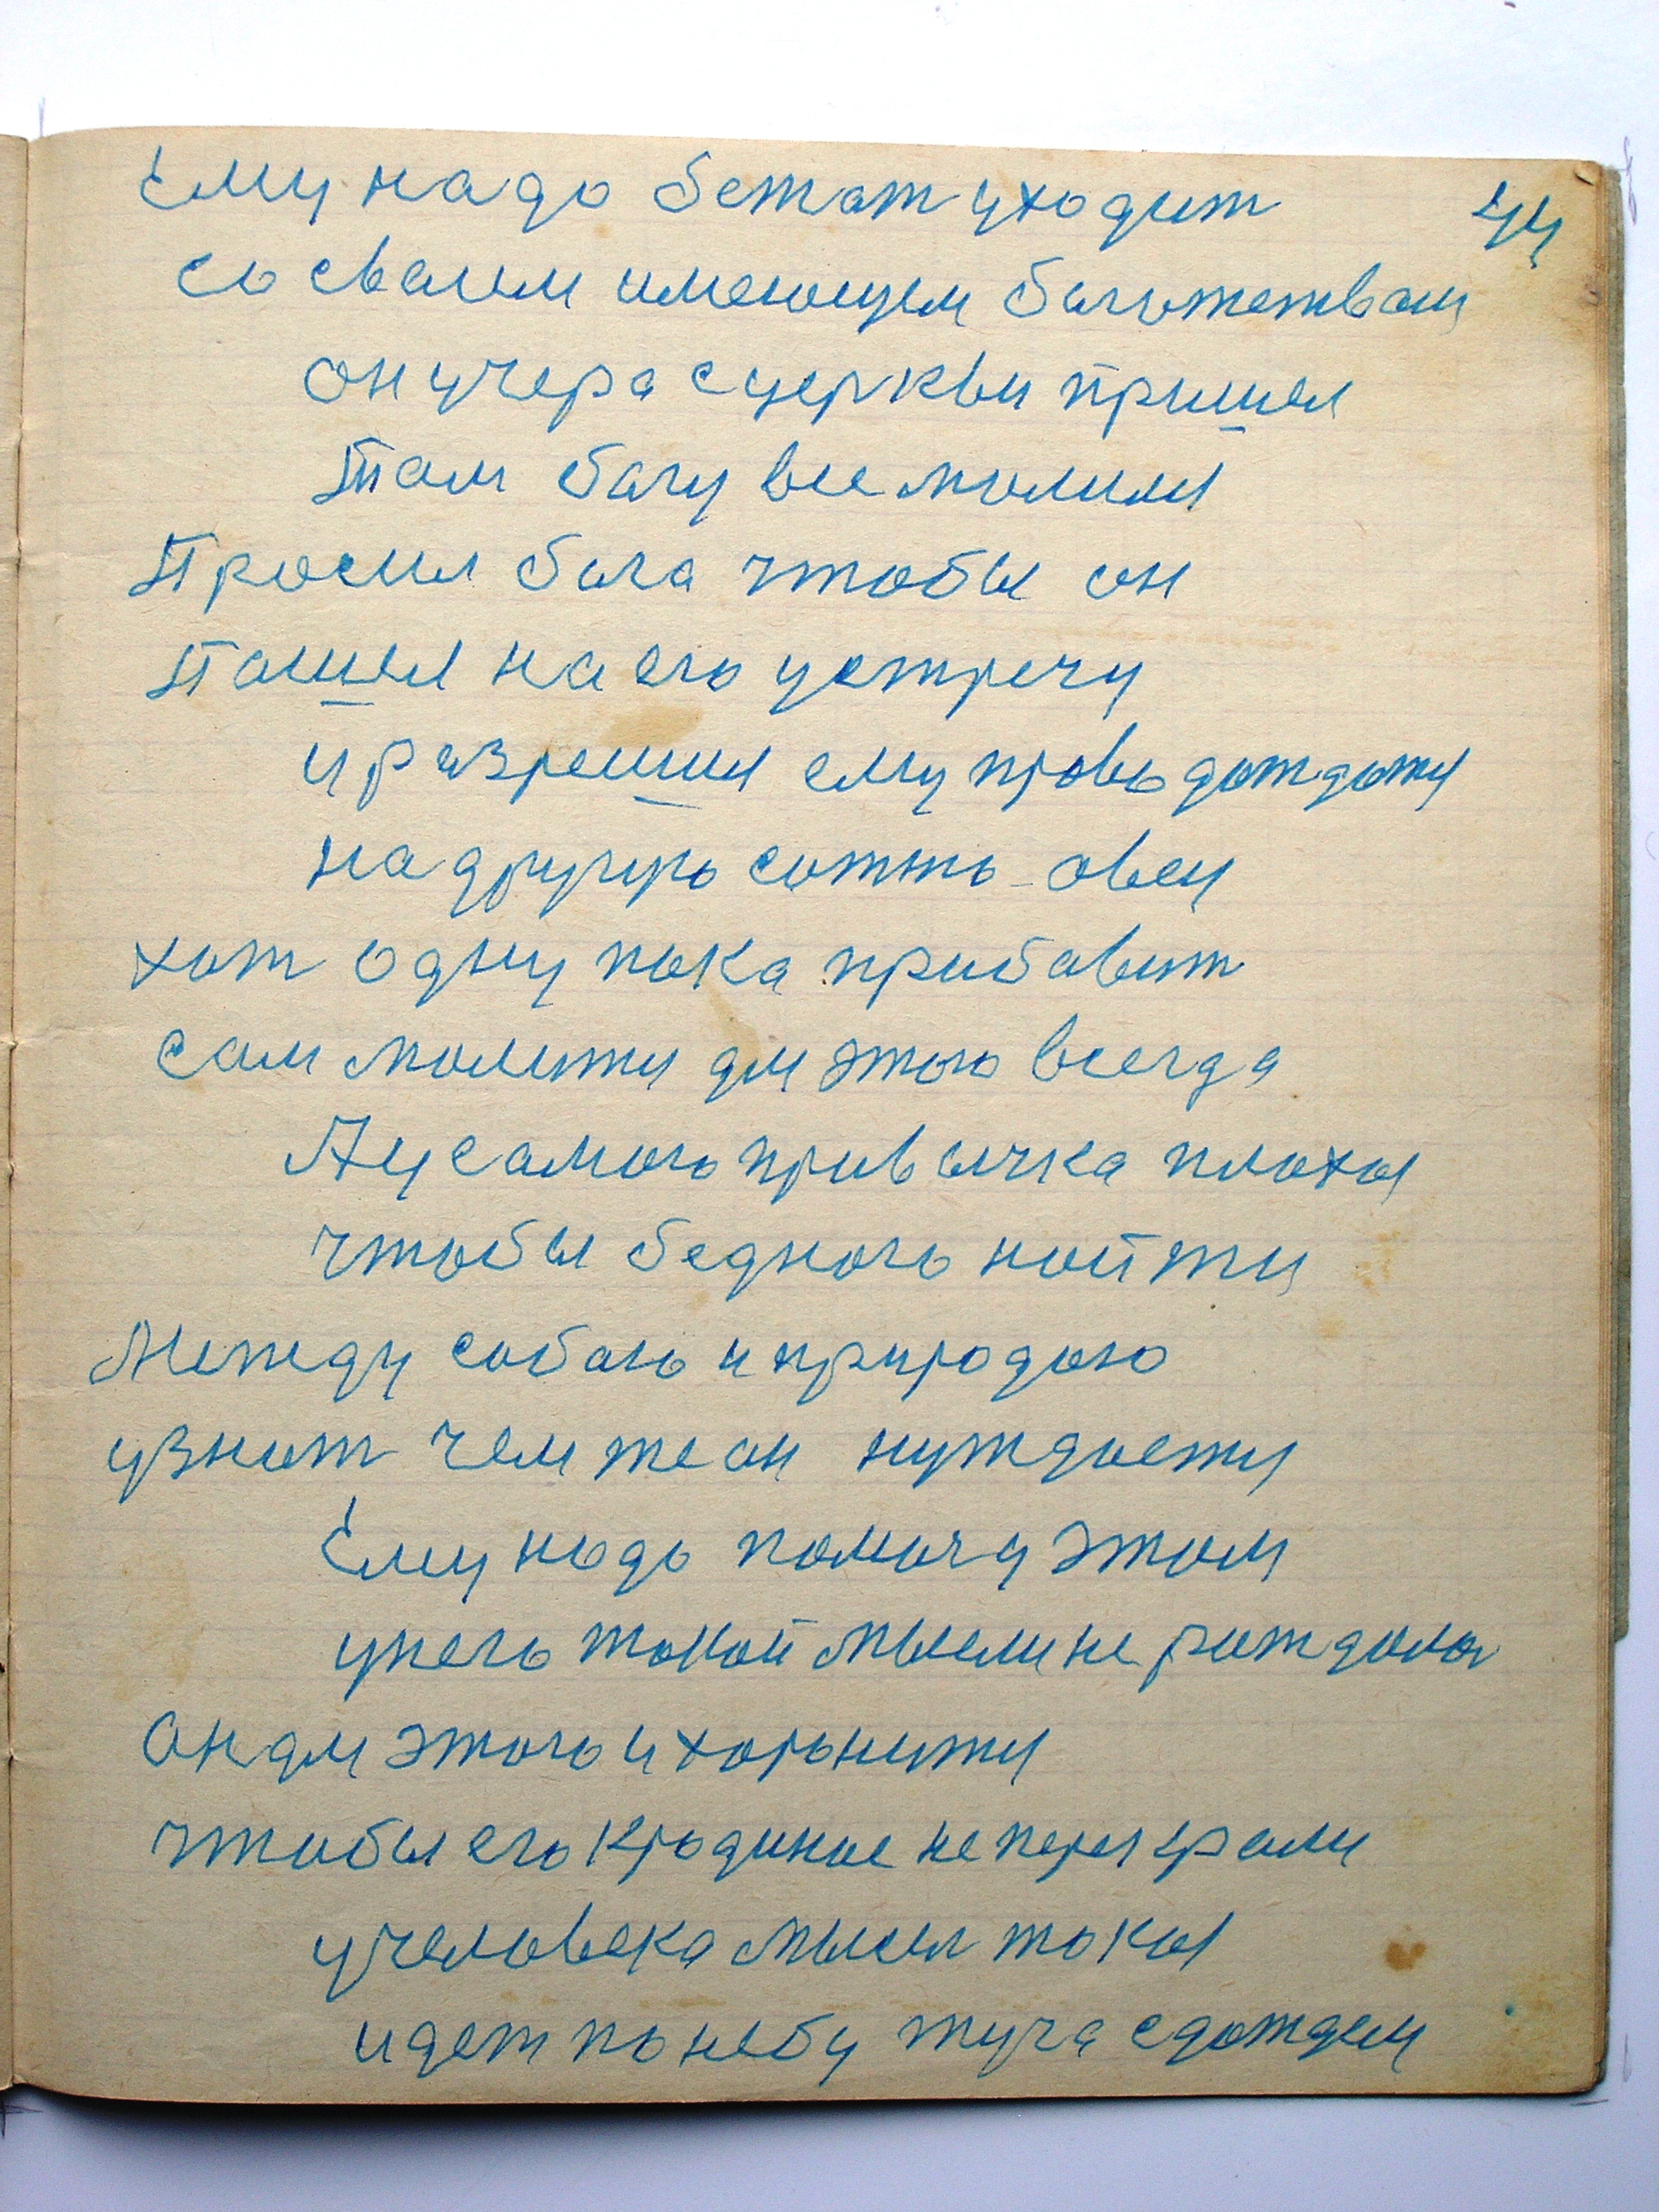 Ему надо бежат уходит 44
со сваим имеющем багатжтвам
он учера с церквы пришел
Там багу все молился
Просил бога чтобы он
Пашел на его устречу
и разрешил ему право дождатся
на другую сотню овец
хот одну пока прибавит
сам молится для этого всегда
А у самого привычка плохая
чтобы бедного найти
Между собою и природою
узнат чем же он нуждается
Ему надо помоч у этом
у него такой мысли не рождалося
Он для этого и хоронится
чтобы его краденое не перекрали
у человека мысля такая
идет по небу туча с дождем